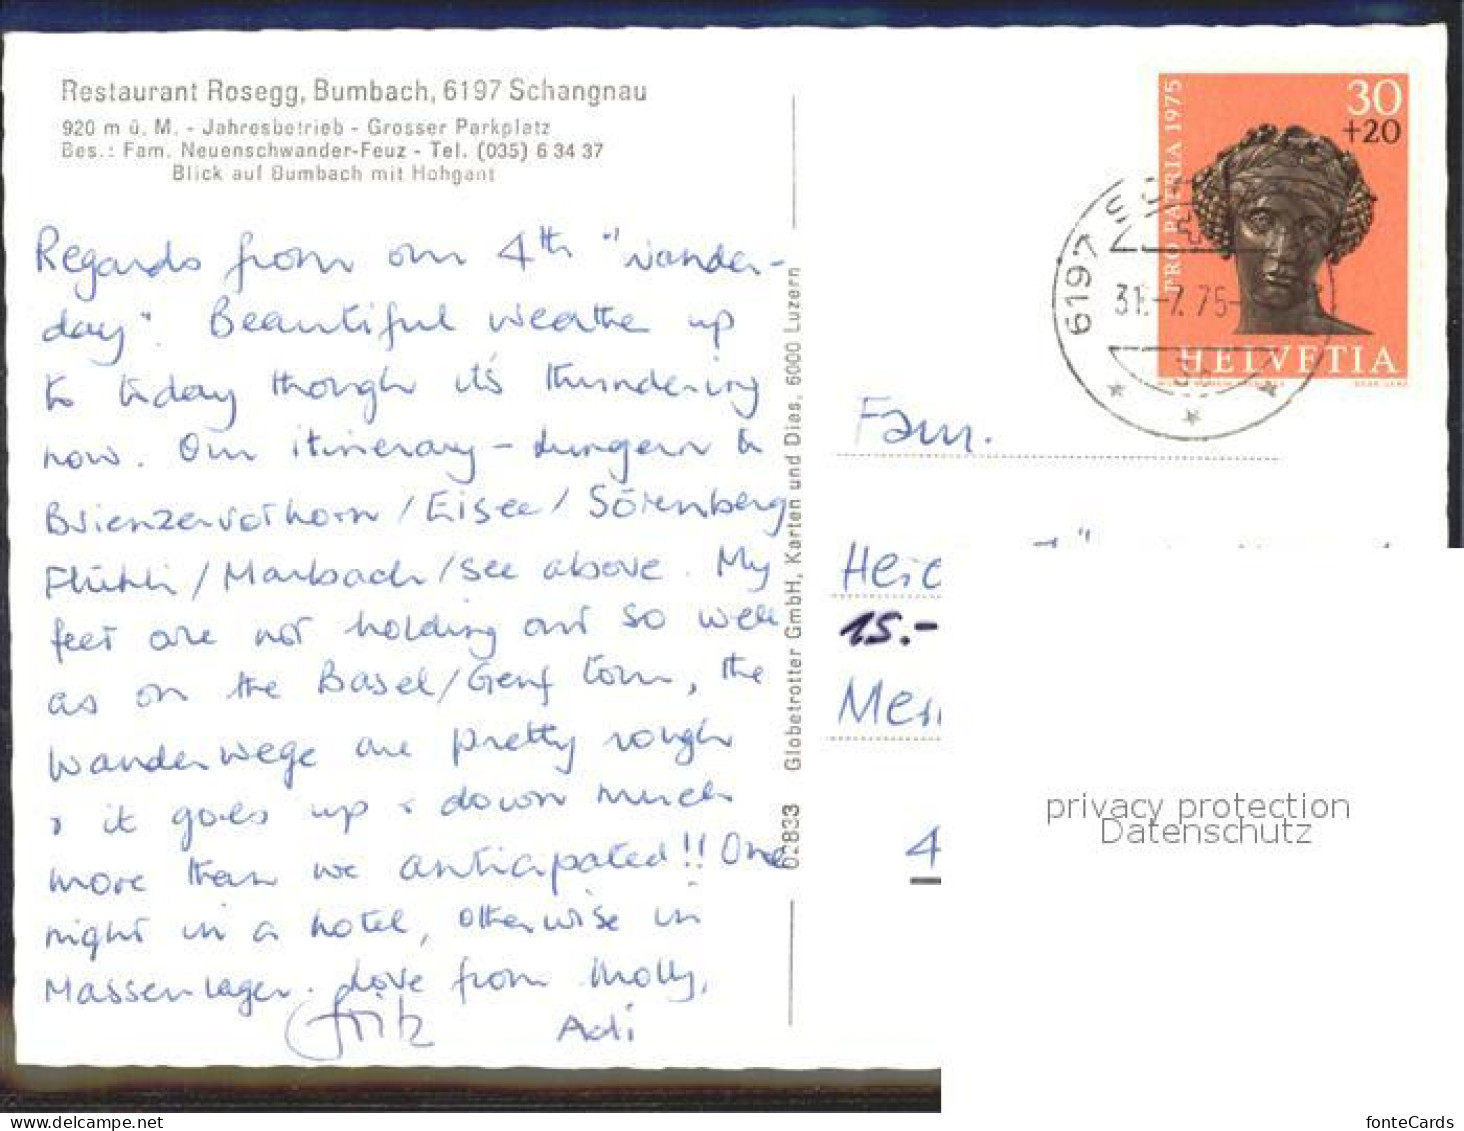 Restaurant Rosegg, Bumbach, 6197 Schangnau
920 m ü. M. - Jahresbetrieb - Grosser Parkplatz
Bes.: Fam. Neuenschwander-Feuz - Tel. (035) 6 34 37
Blick auf Bumbach mit Hohgant
Regards from our 4th "wander-
day". Beautiful weather up
to today though it's thundering
now. Our itinerary - Lungern to
Brienzerrothorn / Eisee / Sörenberg
Flühli / Marbach / see above. My
feet are not holding out so well
as on the Basel/Genf tour, the
Wanderwege are pretty rough
& it goes up & down much
more than we anticipated!! One
night in a hotel, otherwise in
Massenlager. Love from Molly,
Fritz Adi
02833 Globetrotter GmbH, Karten und Dies, 6000 Luzern
PRO PATRIA 1975
30
+20
HELVETIA
6197
31.-7.75-
Fam.
15.-
4
privacy protection
Datenschutz
fonteCards